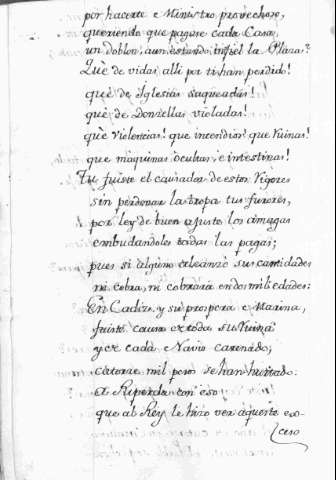 por hacerte e Ministro provechoso,
queriendo que pagase cada Casa,
un doblon, aun estando infiel la Plaza?
Què de vidas alli por ti han perdido!
què de Iglesias saqueadas!
què de Donzellas violadas!
què Violencias! que incendios! que Ruinas!
que maquinas ocultas, e intestinas!
Tu fuiste el causador de estos Rigores
sin perdonar la tropa tus furores,
por ley de buen ajuste los amagas
embudandoles todas las pagas;
pues si alguno alcanzò sus cantidades
ni cobra, ni cobrarà en dos mil edades:
En Cadiz, y su prospera Marina,
fuiste causa de toda su Ruina
y de cada Navio carenado,
catorze mil pesos se han hurtado.
a Riperda con eso
que al Rey le hizo ver aqueste ex-
ceso